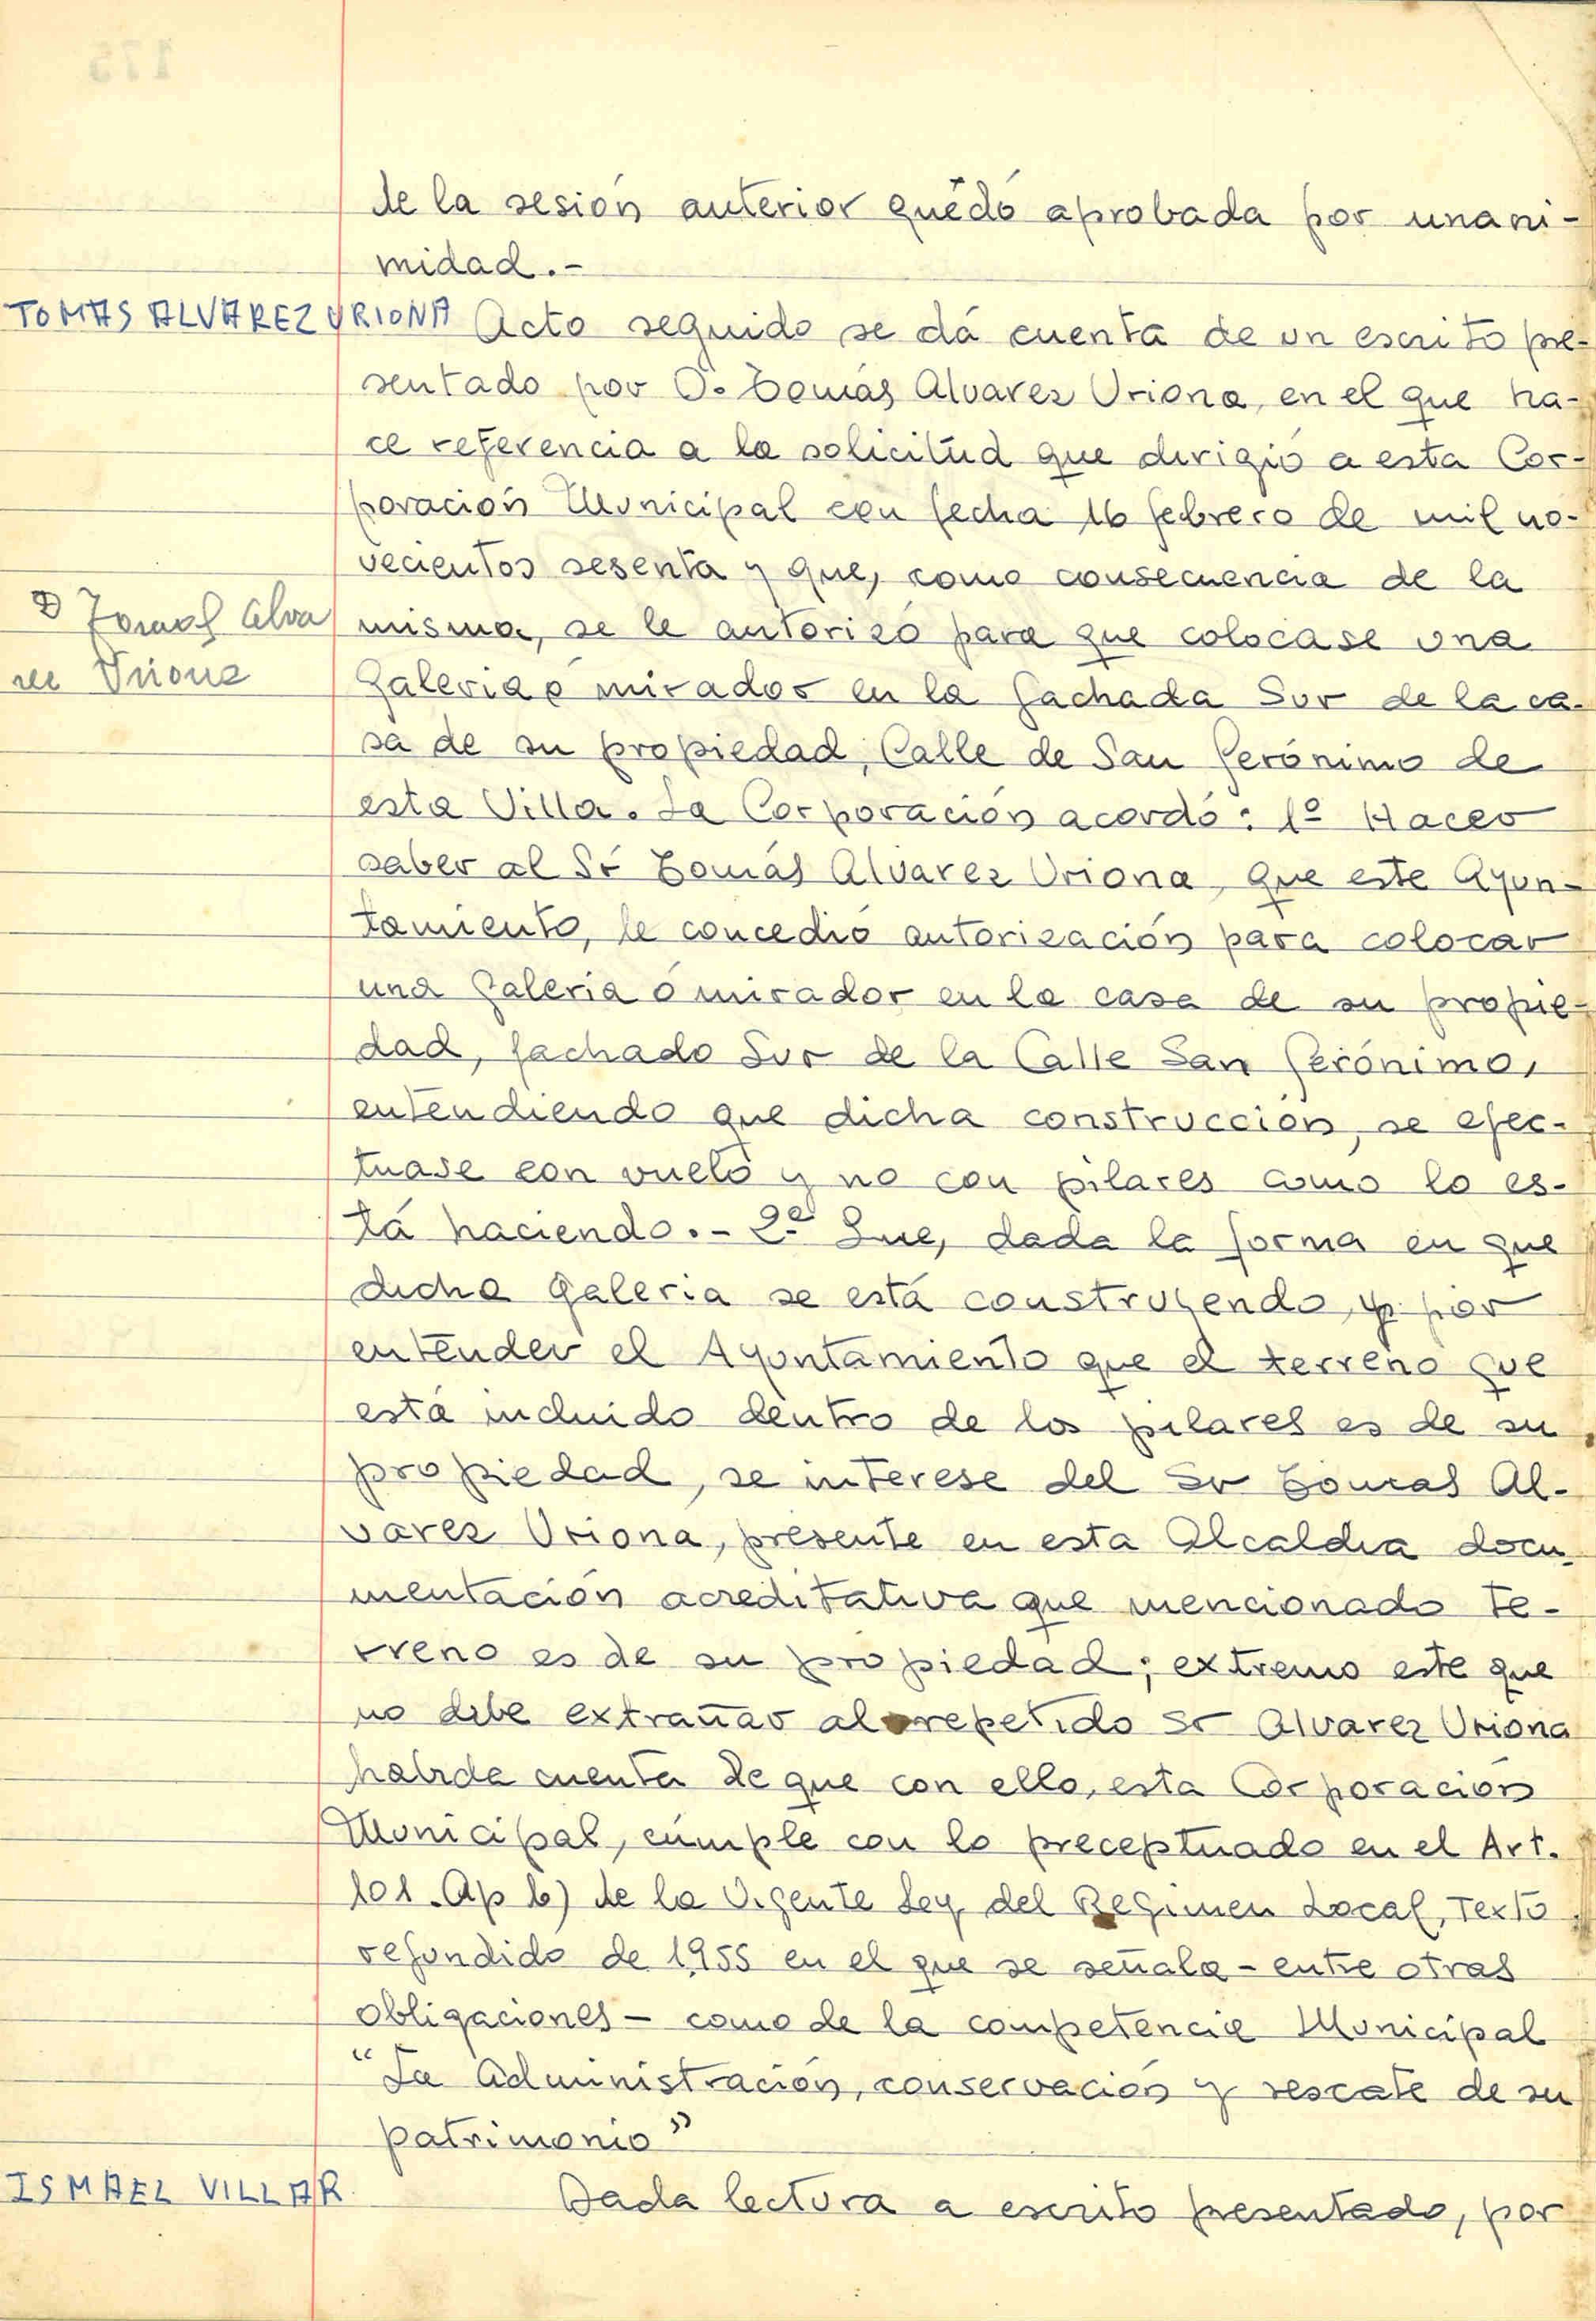 de la sesión anterior quedó aprobada por unani-
midad.-
TOMAS ALVAREZ URIONA
Acto seguido se dá cuenta de un escrito pre-
sentado por D. Tomás Alvarez Uriona, en el que ha-
ce referencia a la solicitud que dirigió a esta Cor-
poración Municipal con fecha 16 febrero de mil no-
vecientos sesenta y que, como consecuencia de la
D Tomas Alva
rez Uriona
misma, se le autorizó para que colocase una
Galeria o mirador en la fachada Sur de la ca-
sa de su propiedad, Calle de San Gerónimo de
esta Villa. La Corporación acordó: 1º Hacer
saber al Sr Tomás Alvarez Uriona, que este Ayun-
tamiento, le concedió autorización para colocar
una Galeria ó mirador en la casa de su propie-
dad, fachada Sur de la Calle San Gerónimo,
entendiendo que dicha construccion, se efec-
tuase con vuelo y no con pilares como lo es-
tá haciendo.- 2º Que, dada la forma en que
dicha Galeria se está construyendo, y por
entender el Ayuntamiento que el terreno que
está incluido dentro de los pilares es de su
propiedad, se interese del Sr Tomás Al-
varez Uriona, presente en esta Alcaldia docu-
mentación acreditativa que mencionado te-
rreno es de su propiedad; extremo este que
no debe extrañar al repetido Sr Alvarez Uriona
habida cuenta de que con ello, esta Corporación
Municipal, cumple con lo preceptuado en el Art.
101. Ap b) de la Vigente Ley del Regimen Local, Texto
refundido de 1955 en el que se señala - entre otras
obligaciones - como de la competencia Municipal
"La Administración, conservación y rescate de su
patrimonio"
ISMAEL VILLAR
Dada lectura a escrito presentado, por